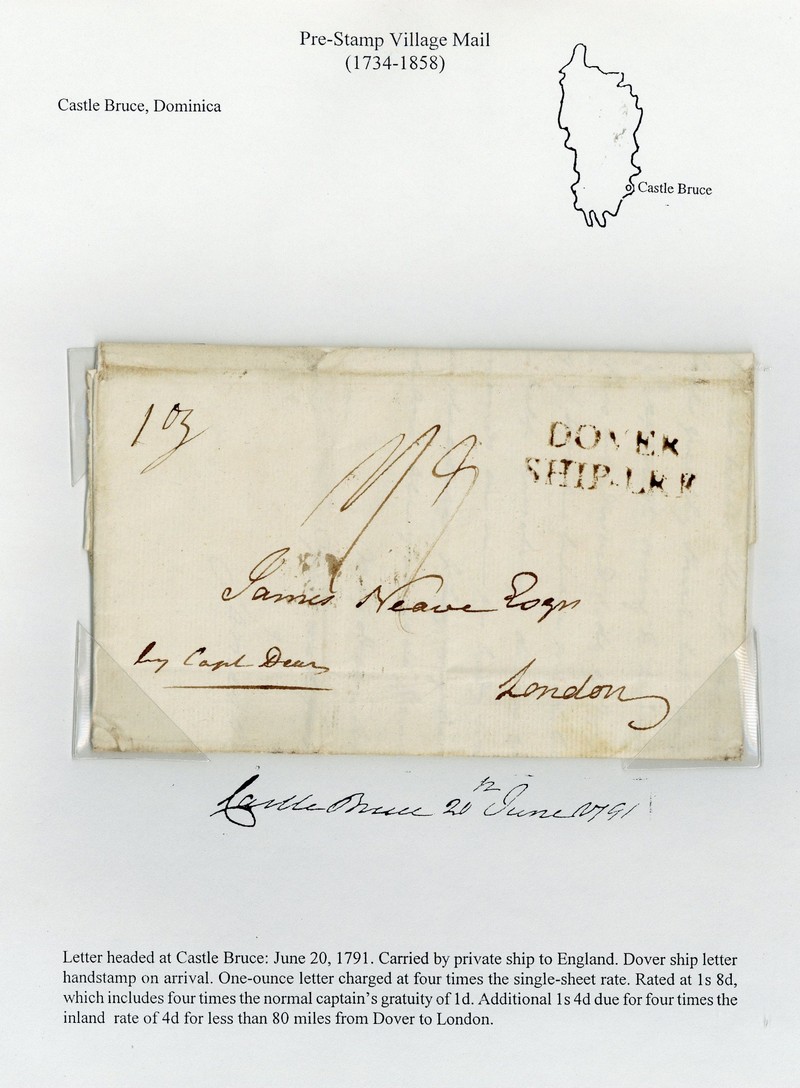 Pre-Stamp Village Mail
(1734-1858)
Castle Bruce, Dominica
Castle Bruce
1 oz
DOVER
SHIP-LRE
James Neave Esqr
by Capt Dear
London
Castle Bruce 20th June 1791
Letter headed at Castle Bruce: June 20, 1791. Carried by private ship to England. Dover ship letter
handstamp on arrival. One-ounce letter charged at four times the single-sheet rate. Rated at 1s 8d,
which includes four times the normal captain's gratuity of 1d. Additional 1s 4d due for four times the
inland rate of 4d for less than 80 miles from Dover to London.